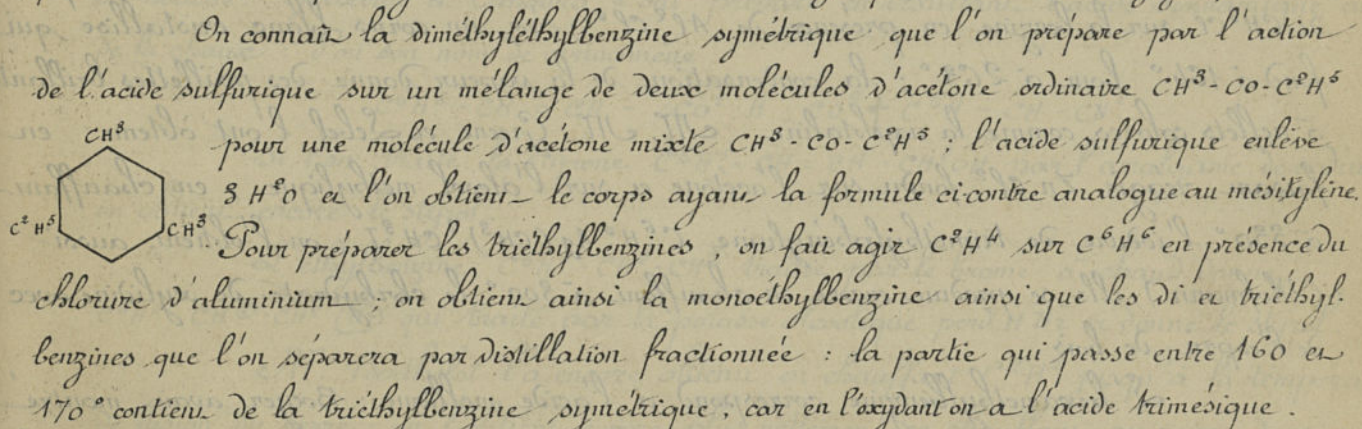 On connaît la diméthyléthylbenzine symétrique que l'on prépare par l'action
de l'acide sulfurique sur un mélange de deux molécules d'acétone ordinaire CH³-CO-C²H⁵
CH³
pour une molécule d'acétone mixte CH³-CO-C²H⁵ ; l'acide sulfurique enlève
3 H²O et l'on obtient le corps ayant la formule ci-contre analogue au mésitylène.
C²H⁵
CH³
Pour préparer les triéthylbenzines, on fait agir C²H⁴ sur C⁶H⁶ en présence du
chlorure d'aluminium ; on obtient ainsi la monoéthylbenzine ainsi que les di et triéthyl-
benzines que l'on séparera par distillation fractionnée : la partie qui passe entre 160 et
170° contient de la triéthylbenzine symétrique, car en l'oxydant on a l'acide trimésique.